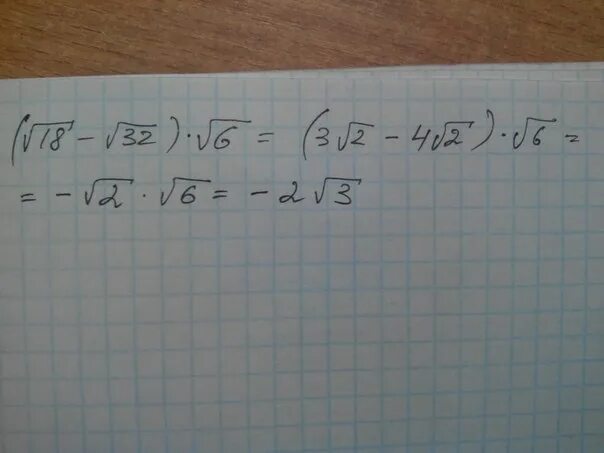 (√18 - √32) · √6 = (3√2 - 4√2) · √6 =
= - √2 · √6 = - 2√3